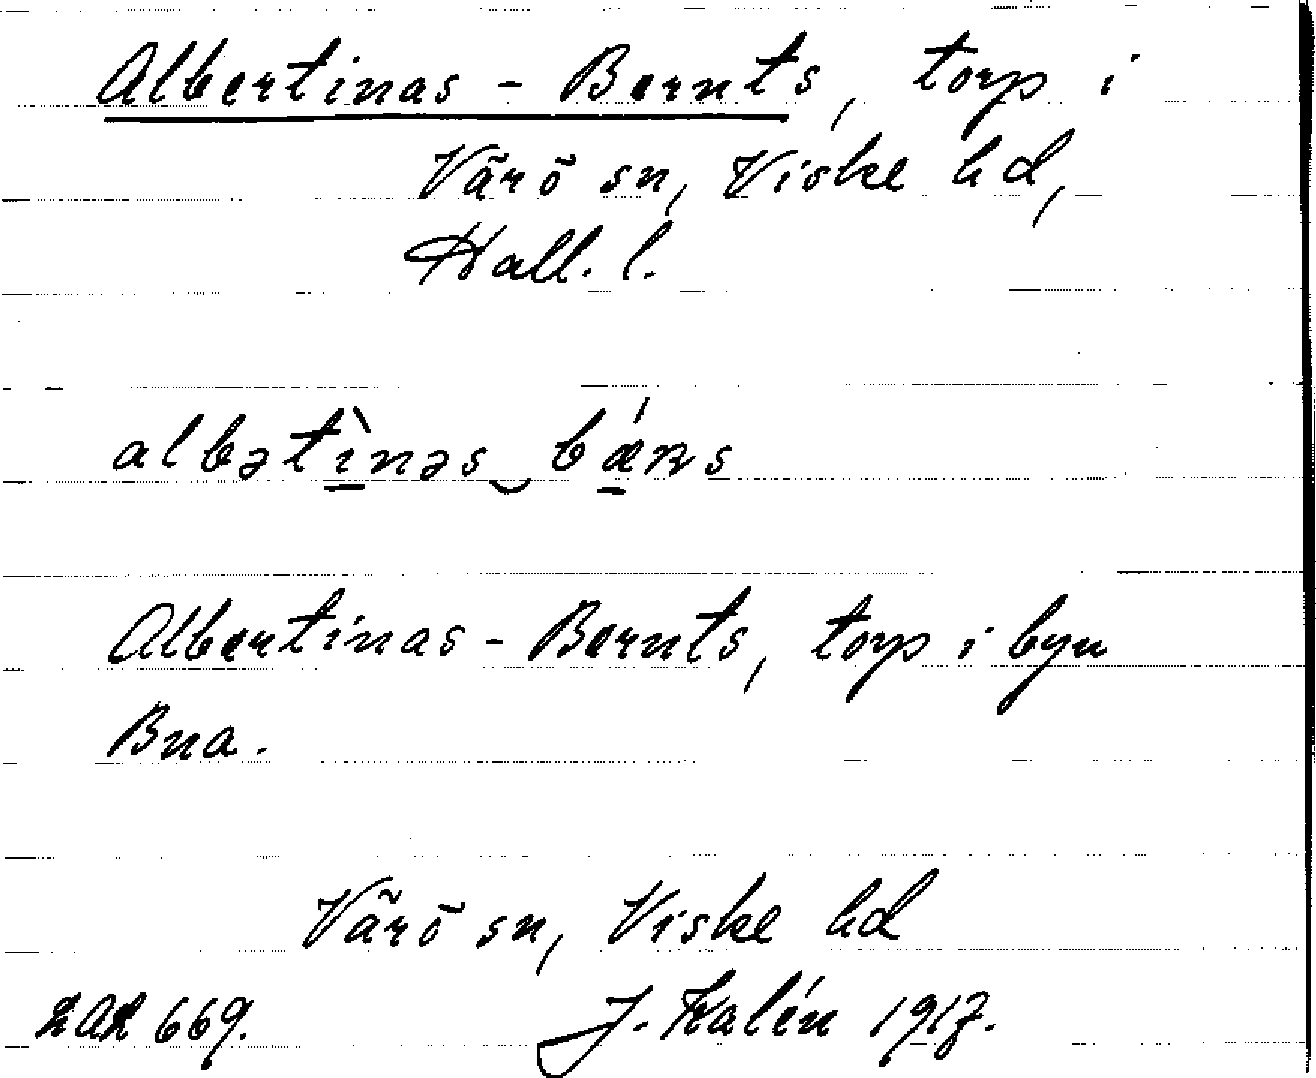 Albertinas - Bernts, torp i
Värö sn, Viske hd,
Hall. l.
albətìnəs‿bǽɳs
Albertinas - Bernts, torp i byn
Bua.
Värö sn, Viske hd
669. J. Kalén 1917.